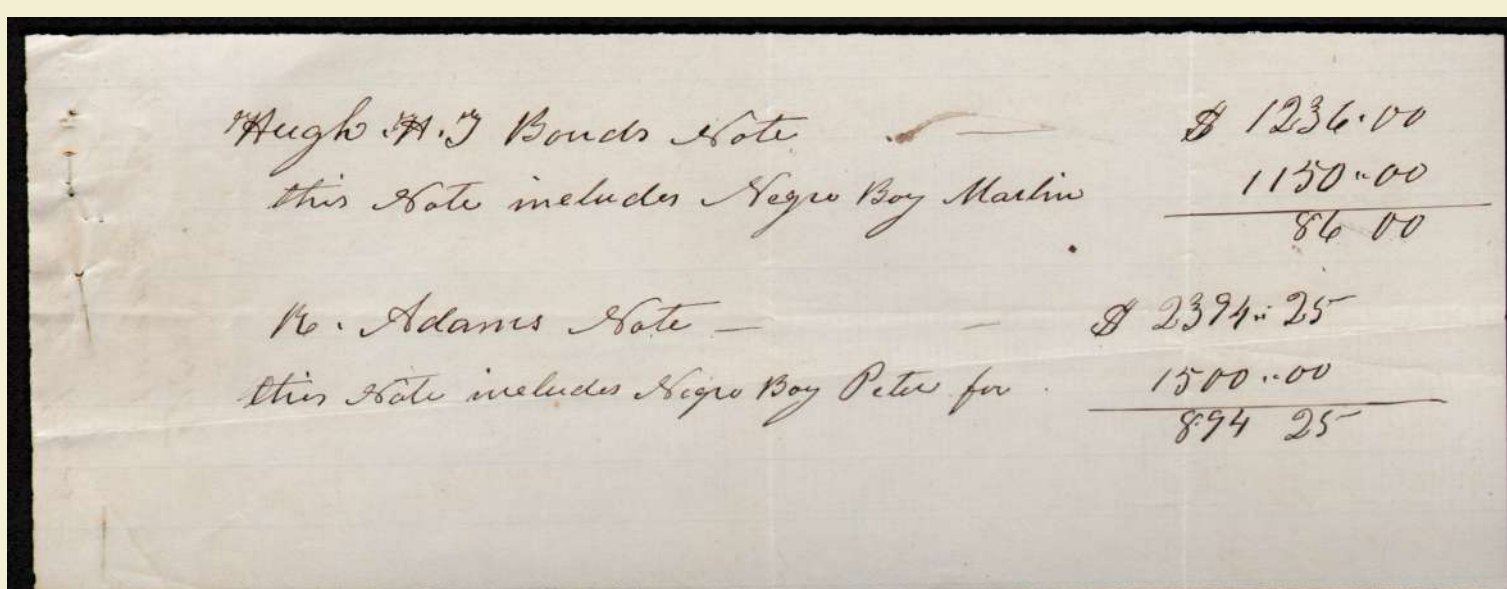 Hugh H. J Bonds Note — $ 1236.00
this Note includes Negro Boy Martin 1150"00
86 00
R. Adams Note — — $ 2394" 25
this Note includes Negro Boy Peter for 1500"00
894 25